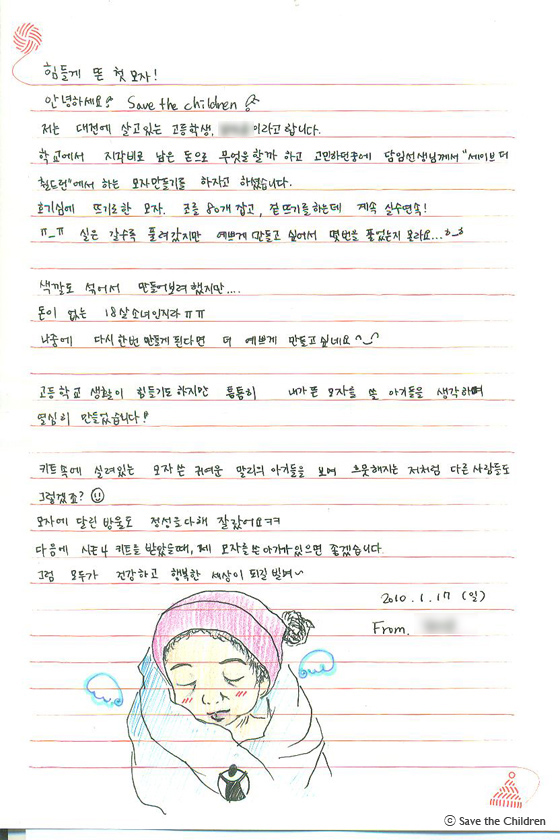 힘들게 뜬 첫 모자!
안녕하세요? Save the children
저는 대전에 살고있는 고등학생, 이라고 합니다.
학교에서 지각비로 남은 돈으로 무엇을 할까 하고 고민하던중에 담임선생님께서 "세이브 더
칠드런"에서 하는 모자만들기를 하자고 하셨습니다.
호기심에 뜨기로한 모자. 코를 80개 잡고, 겉뜨기를 하는데 계속 실수연속!
ㅠ_ㅠ 실은 갈수록 풀려갔지만 예쁘게 만들고 싶어서 몇번을 풀었는지 몰라요...ㅎ_ㅎ
색깔도 섞어서 만들어보려 했지만....
돈이 없는 18살소녀인지라 ㅠㅠ
나중에 다시한번 만들게 된다면 더 예쁘게 만들고 싶네요^_^
고등학교 생활이 힘들기도 하지만 틈틈히 내가 뜬 모자를 쓸 아기들을 생각하며
열심히 만들었습니다!
키트속에 실려있는 모자 쓴 귀여운 말리의 아기들을 보며 흐뭇해지는 저처럼 다른사람들도
그렇겠죠?
모자에 달린 방울도 정성을다해 잘랐어요ㅋㅋ
다음에 시즌4 키트를 받았을때, 제 모자를 쓴 아가가 있으면 좋겠습니다
그럼 모두가 건강하고 행복한 세상이 되길 빌며~
2010.1.17 (일)
From.
ⓒ Save the Children